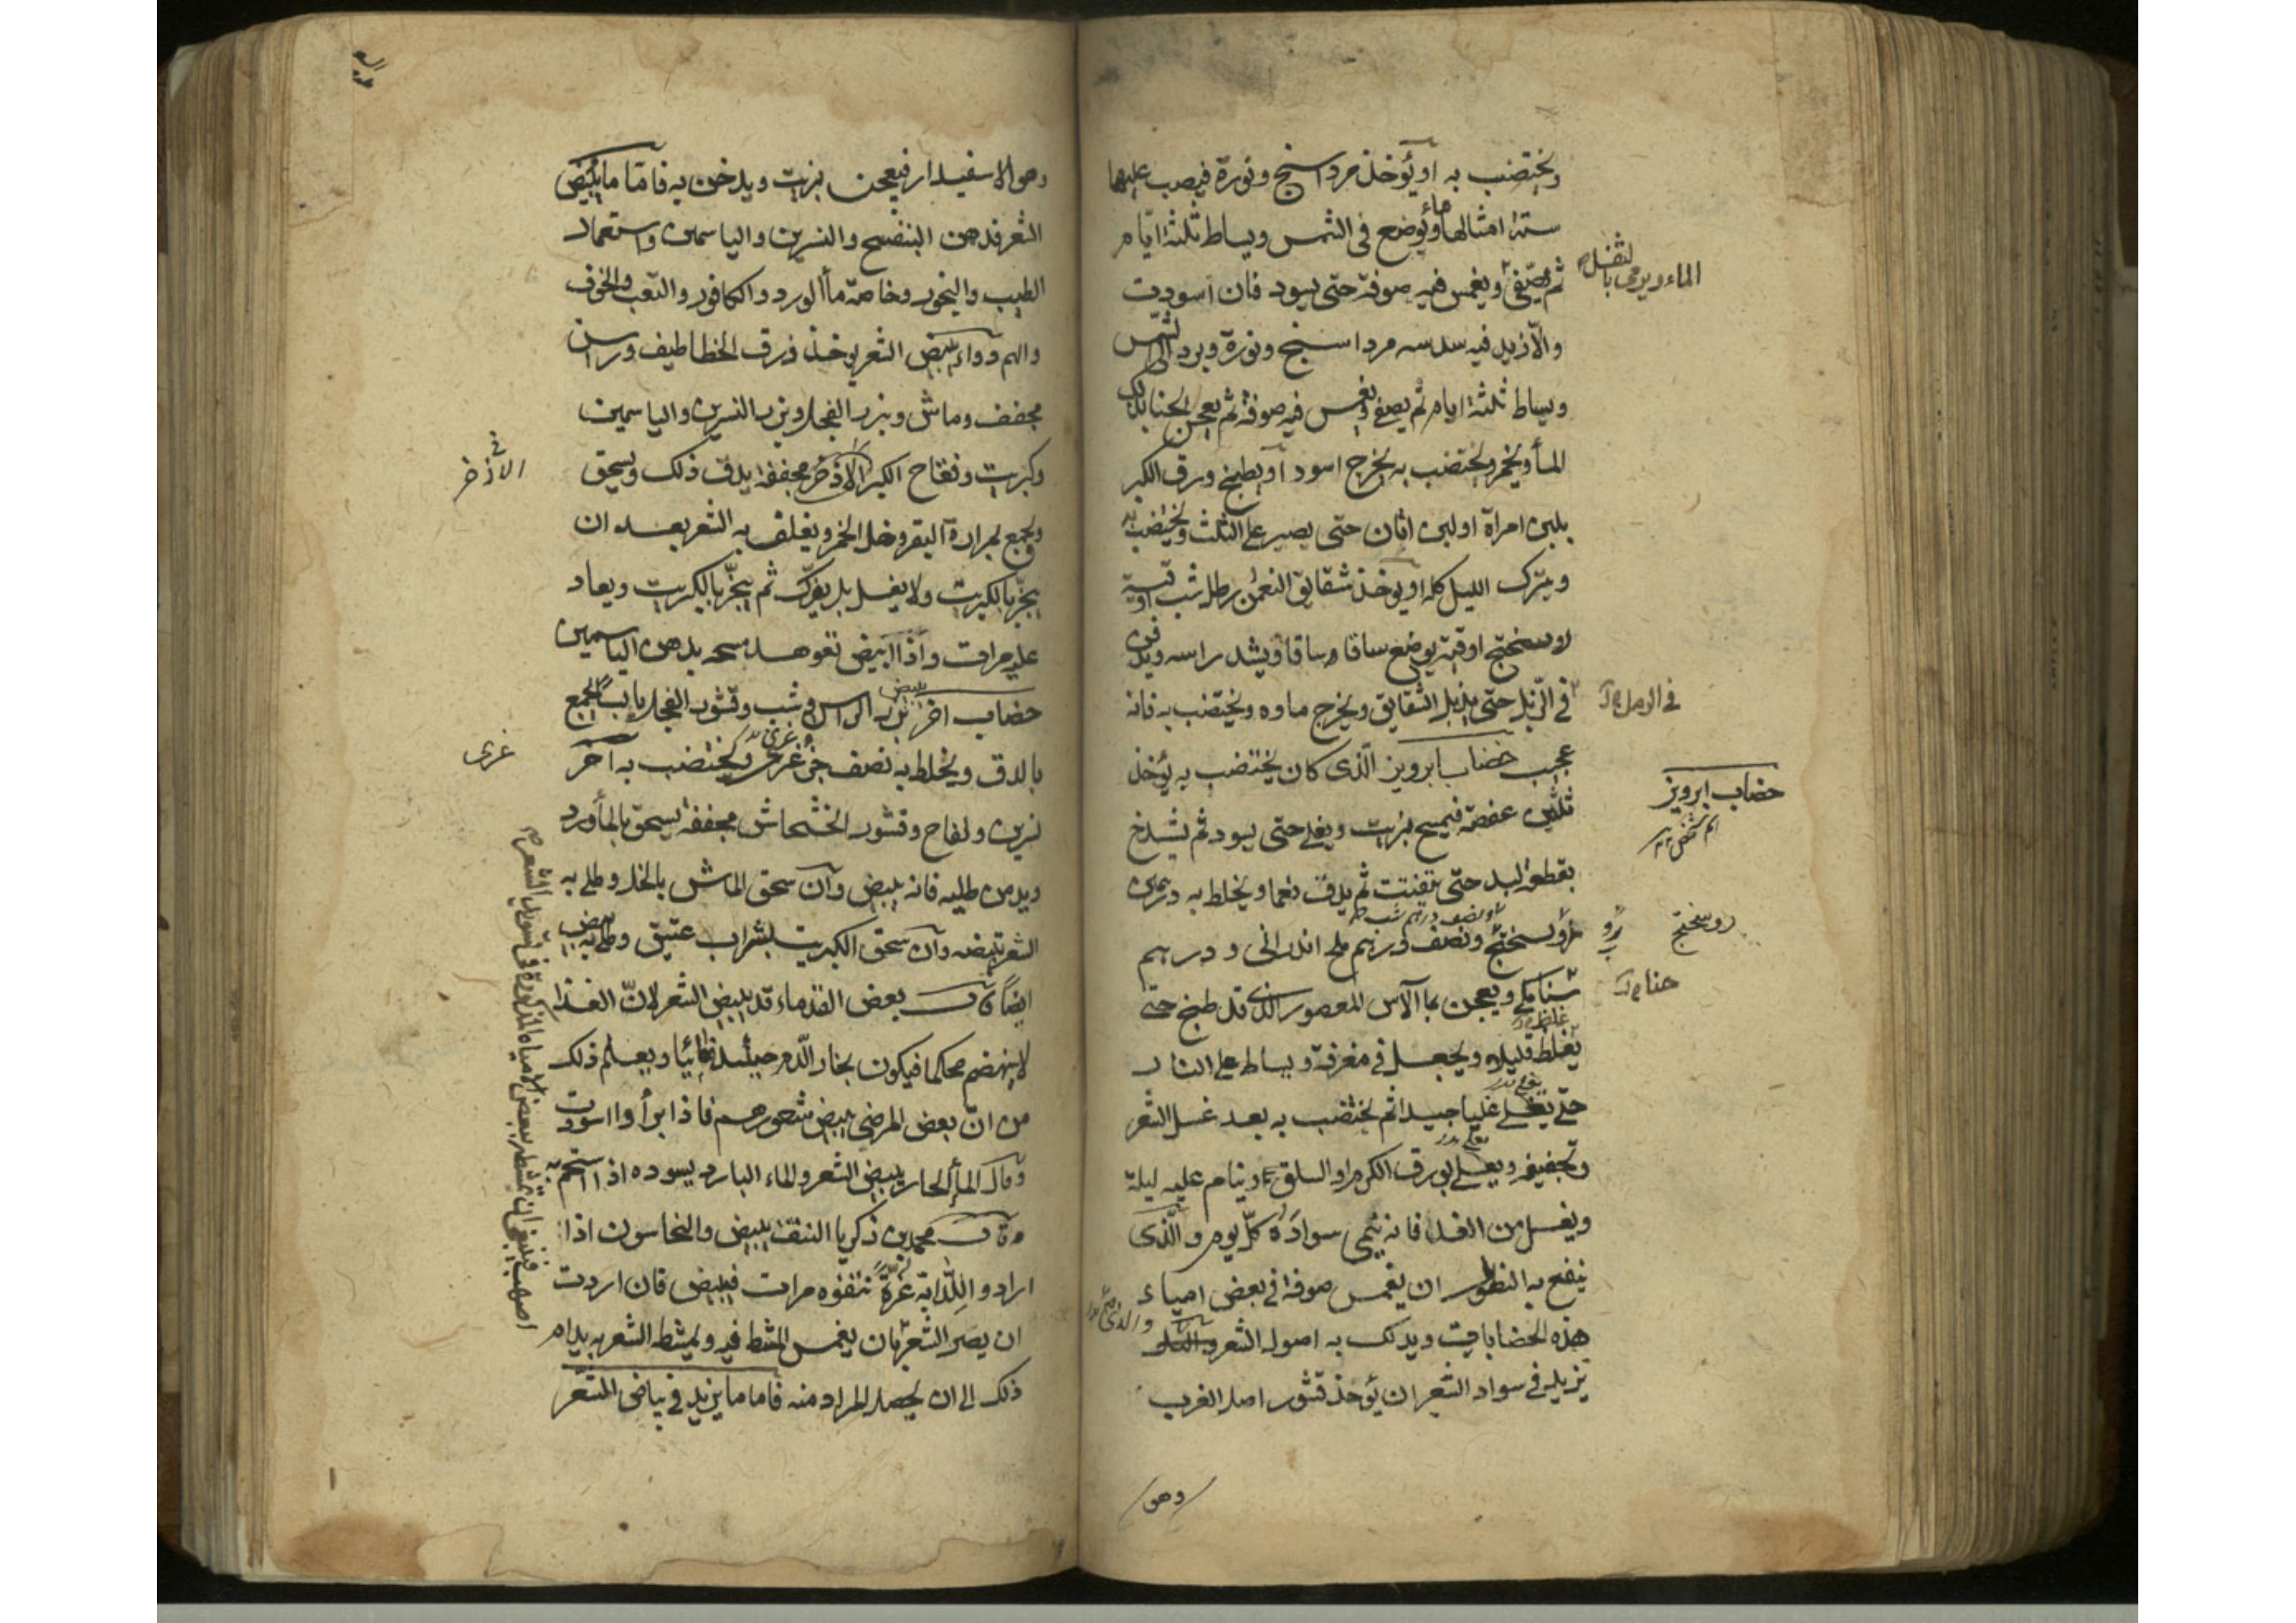 ويختضب به او يؤخذ مرداسنج ونورة فيصب عليها
ستة امثالها ماء ويوضع فى الشمس ويساط ثلثة ايام
ثم يصفى ويغمس فيه صوفة حتى يسود فان اسودت
الماء ويرمى بالثفل
والا زيد فيه سدسه مرداسنج ونورة ويرد الى الشمس
ويساط ثلثة ايام ثم يصفى ويغمس فيه صوفة ثم يعجن الحنا بذلك
الماء ويخمر ويختضب به يخرج اسود او يطبخ ورق الكبر
بلبن امراة او لبن اتان حتى يصير على الثلث ويختضب به
ويترك الليل كله او يؤخذ شقايق النعمن رطل شب اوقية
روسختج اوقية يوضع ساقا وساقا ويشد راسه ويدفن
فى الزبل حتى يذبل الشقايق ويخرج ماوه ويختضب به فانه
فى الرمل
عجيب خضاب ابرويز الذى كان يختضب به يؤخذ
خضاب ابرويز
ثلثين عفصة فيمسح بزيت ويغلى حتى يسود ثم يشدخ
بقطعة لبد حتى يتفتت ثم يدق نعما ويخلط به درهمين
روسختج ونصف درهم ملح اندرانى ودرهم
روسختج
حنا
ويعجن بما الآس المعصور الذى قد طبخ حتى
يغلظ قليلا ويجعل فى مغرفة ويساط على النار
حتى يغلى غليا جيدا ثم يختضب به بعد غسل الشعر
وتجفيفه ويعلى بورق الكرم او السلق وينام عليه ليلة
ويغسل من الغد فانه ينمى سواده كل يوم والذى
ينفع به النصول ان يغمس صوفة فى بعض امياء
هذه الخضابات ويدلك به اصول الشعر والذى
يزيد فى سواد الشعر ان يؤخذ قشور اصل الغرب
وهو
وهو الاسفيدار فيعجن بزيت ويدخن به فاما ما يبيض
الشعر فدهن البنفسج والنسرين والياسمين واستعمال
الطيب والبخور وخاصة ماء الورد والكافور والتعب والخوف
والهم دواء يبيض الشعر يوخذ ذرق الخطاطيف وراسن
مجفف وماش وبزر الفجل وبزر النسرين والياسمين
وكبريت وفقاح الكبر الاذخر مجففة يدق ذلك ويسحق
الاذخر
ويجمع بمرارة البقر وخل الخمر ويغلف به الشعر بعد ان
يبخر بالكبريت ولا يغسل بل يفرك ثم يبخر بالكبريت ويعاد
عليه مرات واذا ابيض تعوهد مسحه بدهن الياسمين
خضاب اخر يبيض بزر الراس وشب وقشور الفجل يابسا يجمع
بالدق ويخلط به نصف جزء غرى ويختضب به آخر
غرى
نسرين ولفاح وقشور الخشخاش مجففة يسحق بالماورد
ويدمن طليه فانه يبيض وان سحق الماش بالخل وطلى به
الشعر بيضه وان سحق الكبريت بشراب عتيق وطلى به يبيض
ايضا قال بعض القدماء قد يبيض الشعر لان الغذا
لا ينهضم محكما فيكون بخار الدم حينئذ مائيا ويعلم ذلك
من ان بعض المرضى يبيض شعورهم فاذا برأوا اسودت
وقال الماء الحار يبيض الشعر والماء البارد يسوده اذا استحم به
وقال محمد بن زكريا النتف يبيض والنخاسون اذا
ارادوا للدابة غرة نتفوه مرات فيبيض فان اردت
ان يصير الشعر بان يغمس المشط فيه ويمشط الشعر به يدام
ذلك الى ان يحصل المراد منه فاما ما يزيد فى بياض الشعر
اصهب فينبغى ان تمشطه ببعض الامياه المذكورة فى تسويد الشعر